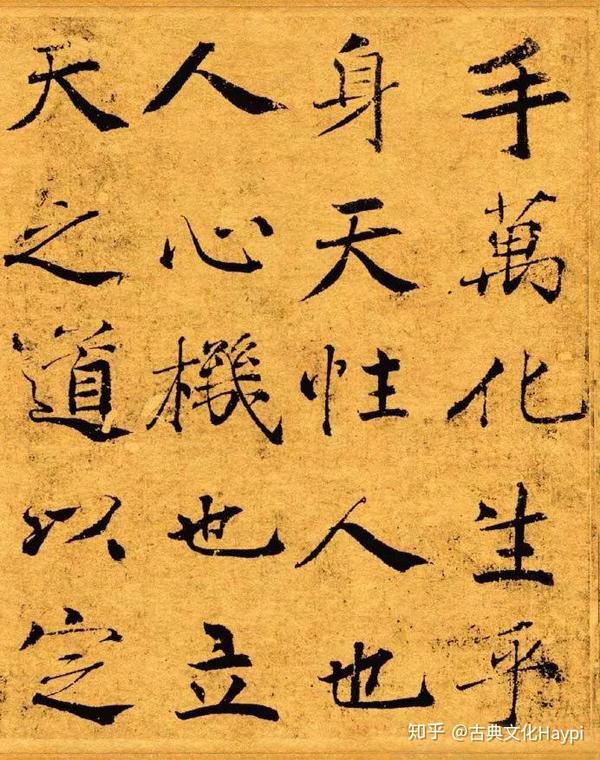 手萬化生乎
身天性人也
人心機也立
天之道以定
知乎 @古典文化Haypi